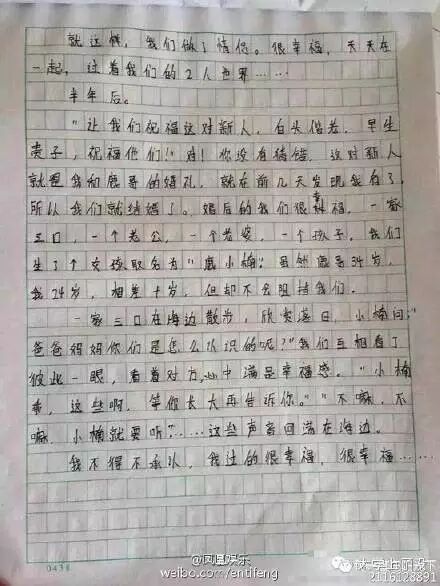 就这样，我们做了情侣。很幸福，天天在
一起，过着我们的2人世界……
半年后。
"让我们祝福这对新人，白头偕老，早生
贵子，祝福他们！"对！你没有猜错，这对新人
就是我和鹿哥的婚礼，就在前几天发现我有了，
所以我们就结婚了。婚后的我们很幸福，一家
三口，一个老公，一个老婆，一个孩子。我们
生了个女孩取名为"鹿小楠"虽然鹿哥34岁，
我24岁，相差十岁，但却不会阻挡我们。
一家三口在海边散步，欣赏落日，小楠问："
爸爸妈妈你们是怎么认识的呢？"我们互相看了
彼此一眼，看着对方，心中满足幸福感。"小楠
乖，这些啊，等你长大再告诉你。""不嘛，不
嘛，小楠就要听"……这些声音回荡在海边。
我不得不承认，我过的很幸福，很幸福……
0438
@凤凰娱乐
weibo.com/entifeng
大学上了没下
2116128891